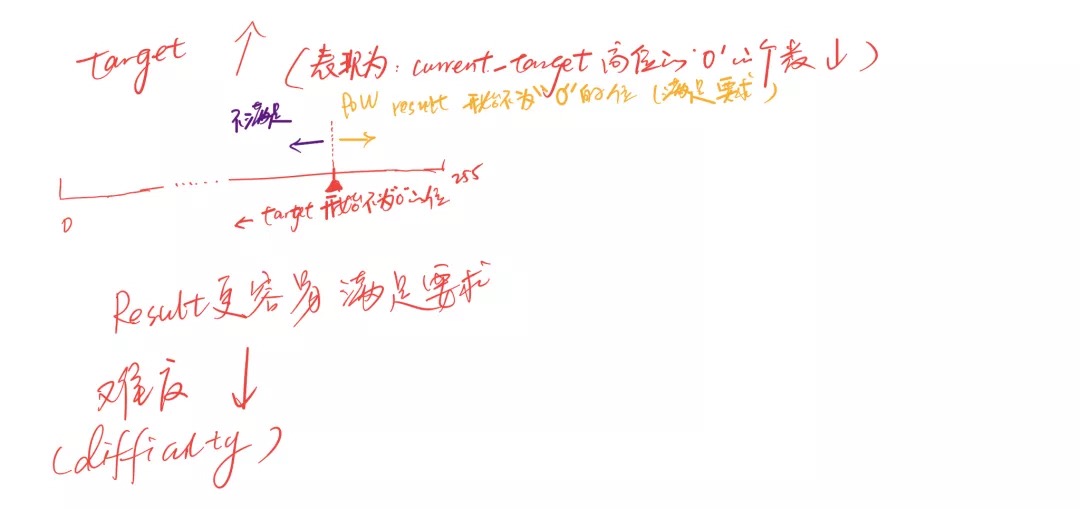 target ↑ (表现为: current_target 高位的'0'的个数↓)
不满足 ← → PoW result 开始不为"0"的位 (满足要求)
0 ...... 255
← target 开始不为"0"的位
Result更容易满足要求
难度 ↓
(difficulty)